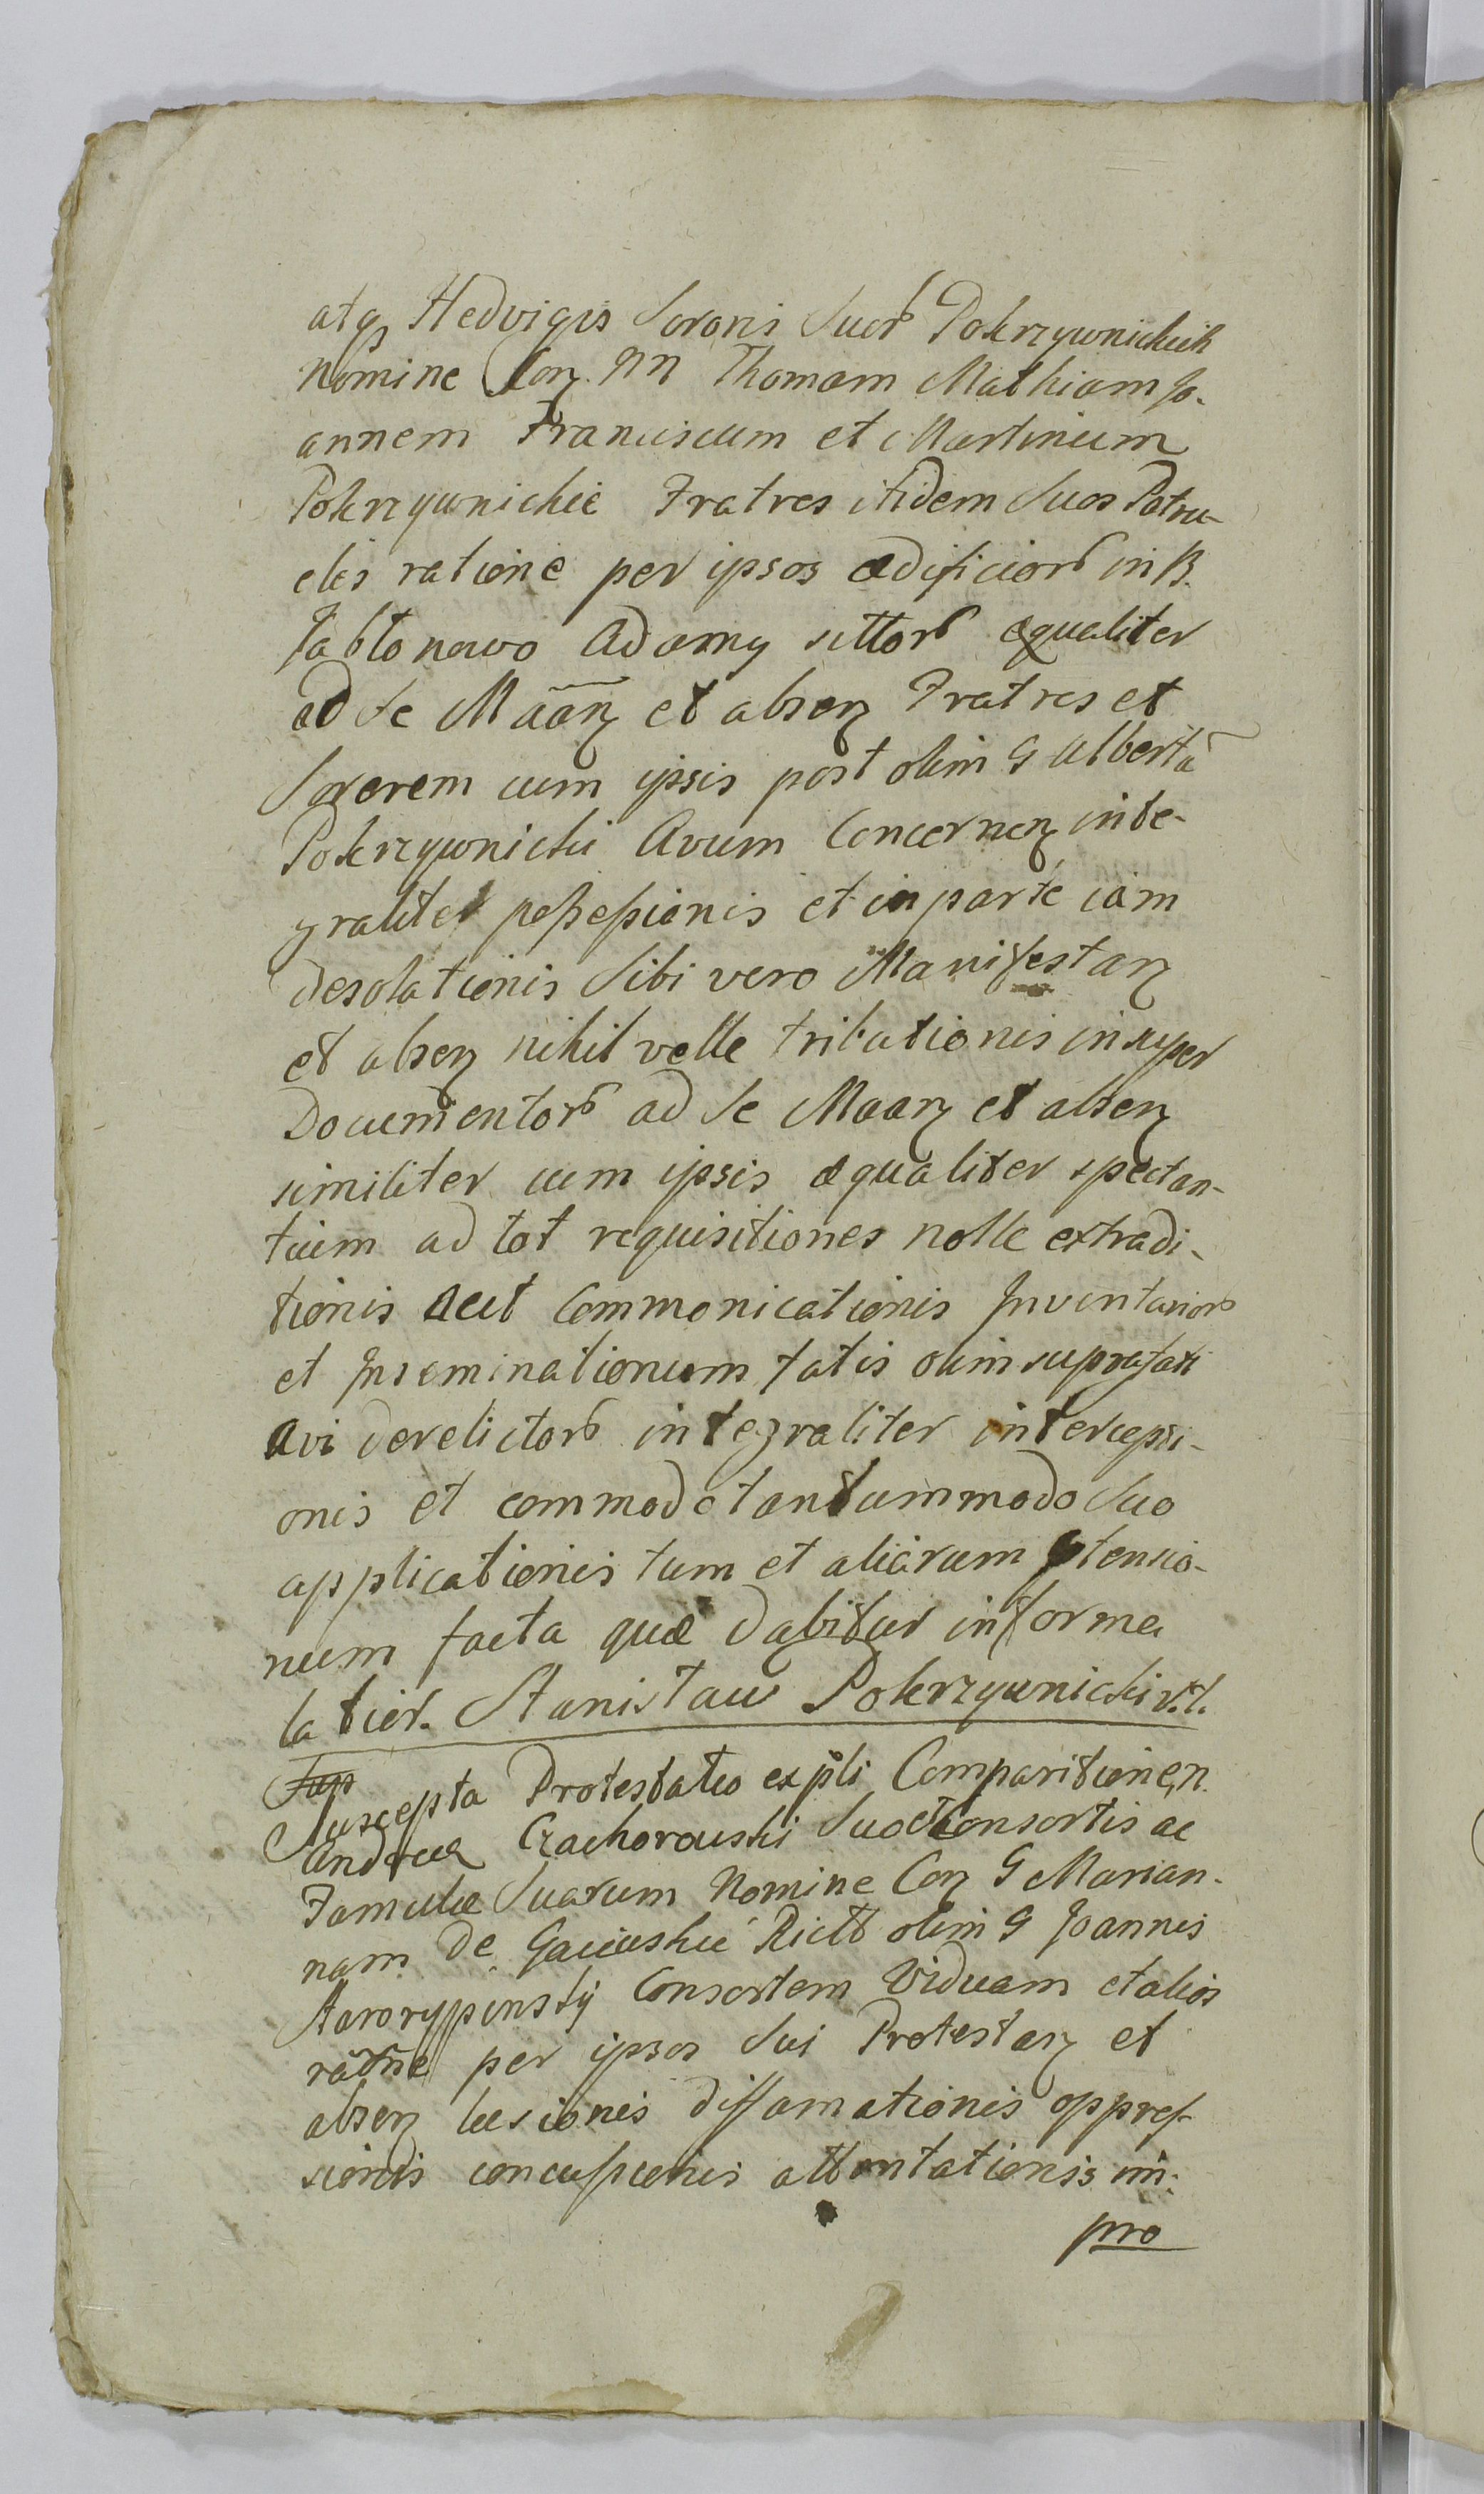 atq₃ Hedvigis Sororis Suor Pokrzywnickich
Nomine Con. NN Thomam Mathiam Jo-
annem Franciscum et Martinum
Pokrzywnickie Fratres itidem Suos Patru-
eles ratione per ipsos ædificior in B.
Jabłonowo Adamy sittor æqualiter
ad Se Maan et absen Fratres et
Sororem cum ipsis post olim G Albertū
Pokrzywnicki Avum Concernen inte-
graliter possessionis et in parte iam
desolationis Sibi vero Manifestan
et absen nihil velle tributionis insuper
Documentor ad Se Maan et absen
similiter cum ipsis æqualiter spectan-
tium ad tot requisitiones nolle extradi-
tionis aut Communicationis Inventarior
et Inseminationum fatis olim suprafati
Avi derelictor integraliter intercepti-
onis et commodo tantummodo Suo
applicationis tum et aliarum ptensio-
num facta quæ dabitur in forma
latiori. Stanisław Pokrzywnicki
Sus
Suscepta Protestatio ex pli Comparitione N.
Andreæ Czachorowski Suo et Consortis ac
Familiæ Suarum Nomine Con G Marian-
nam De Gaiewskie olim G Joannis
Starorypinsky Consortem Viduam et alios
ratne per ipsos Sui Protestan et
absen læsionis diffamationis oppres-
sionis concussionis attentationis im-
pro